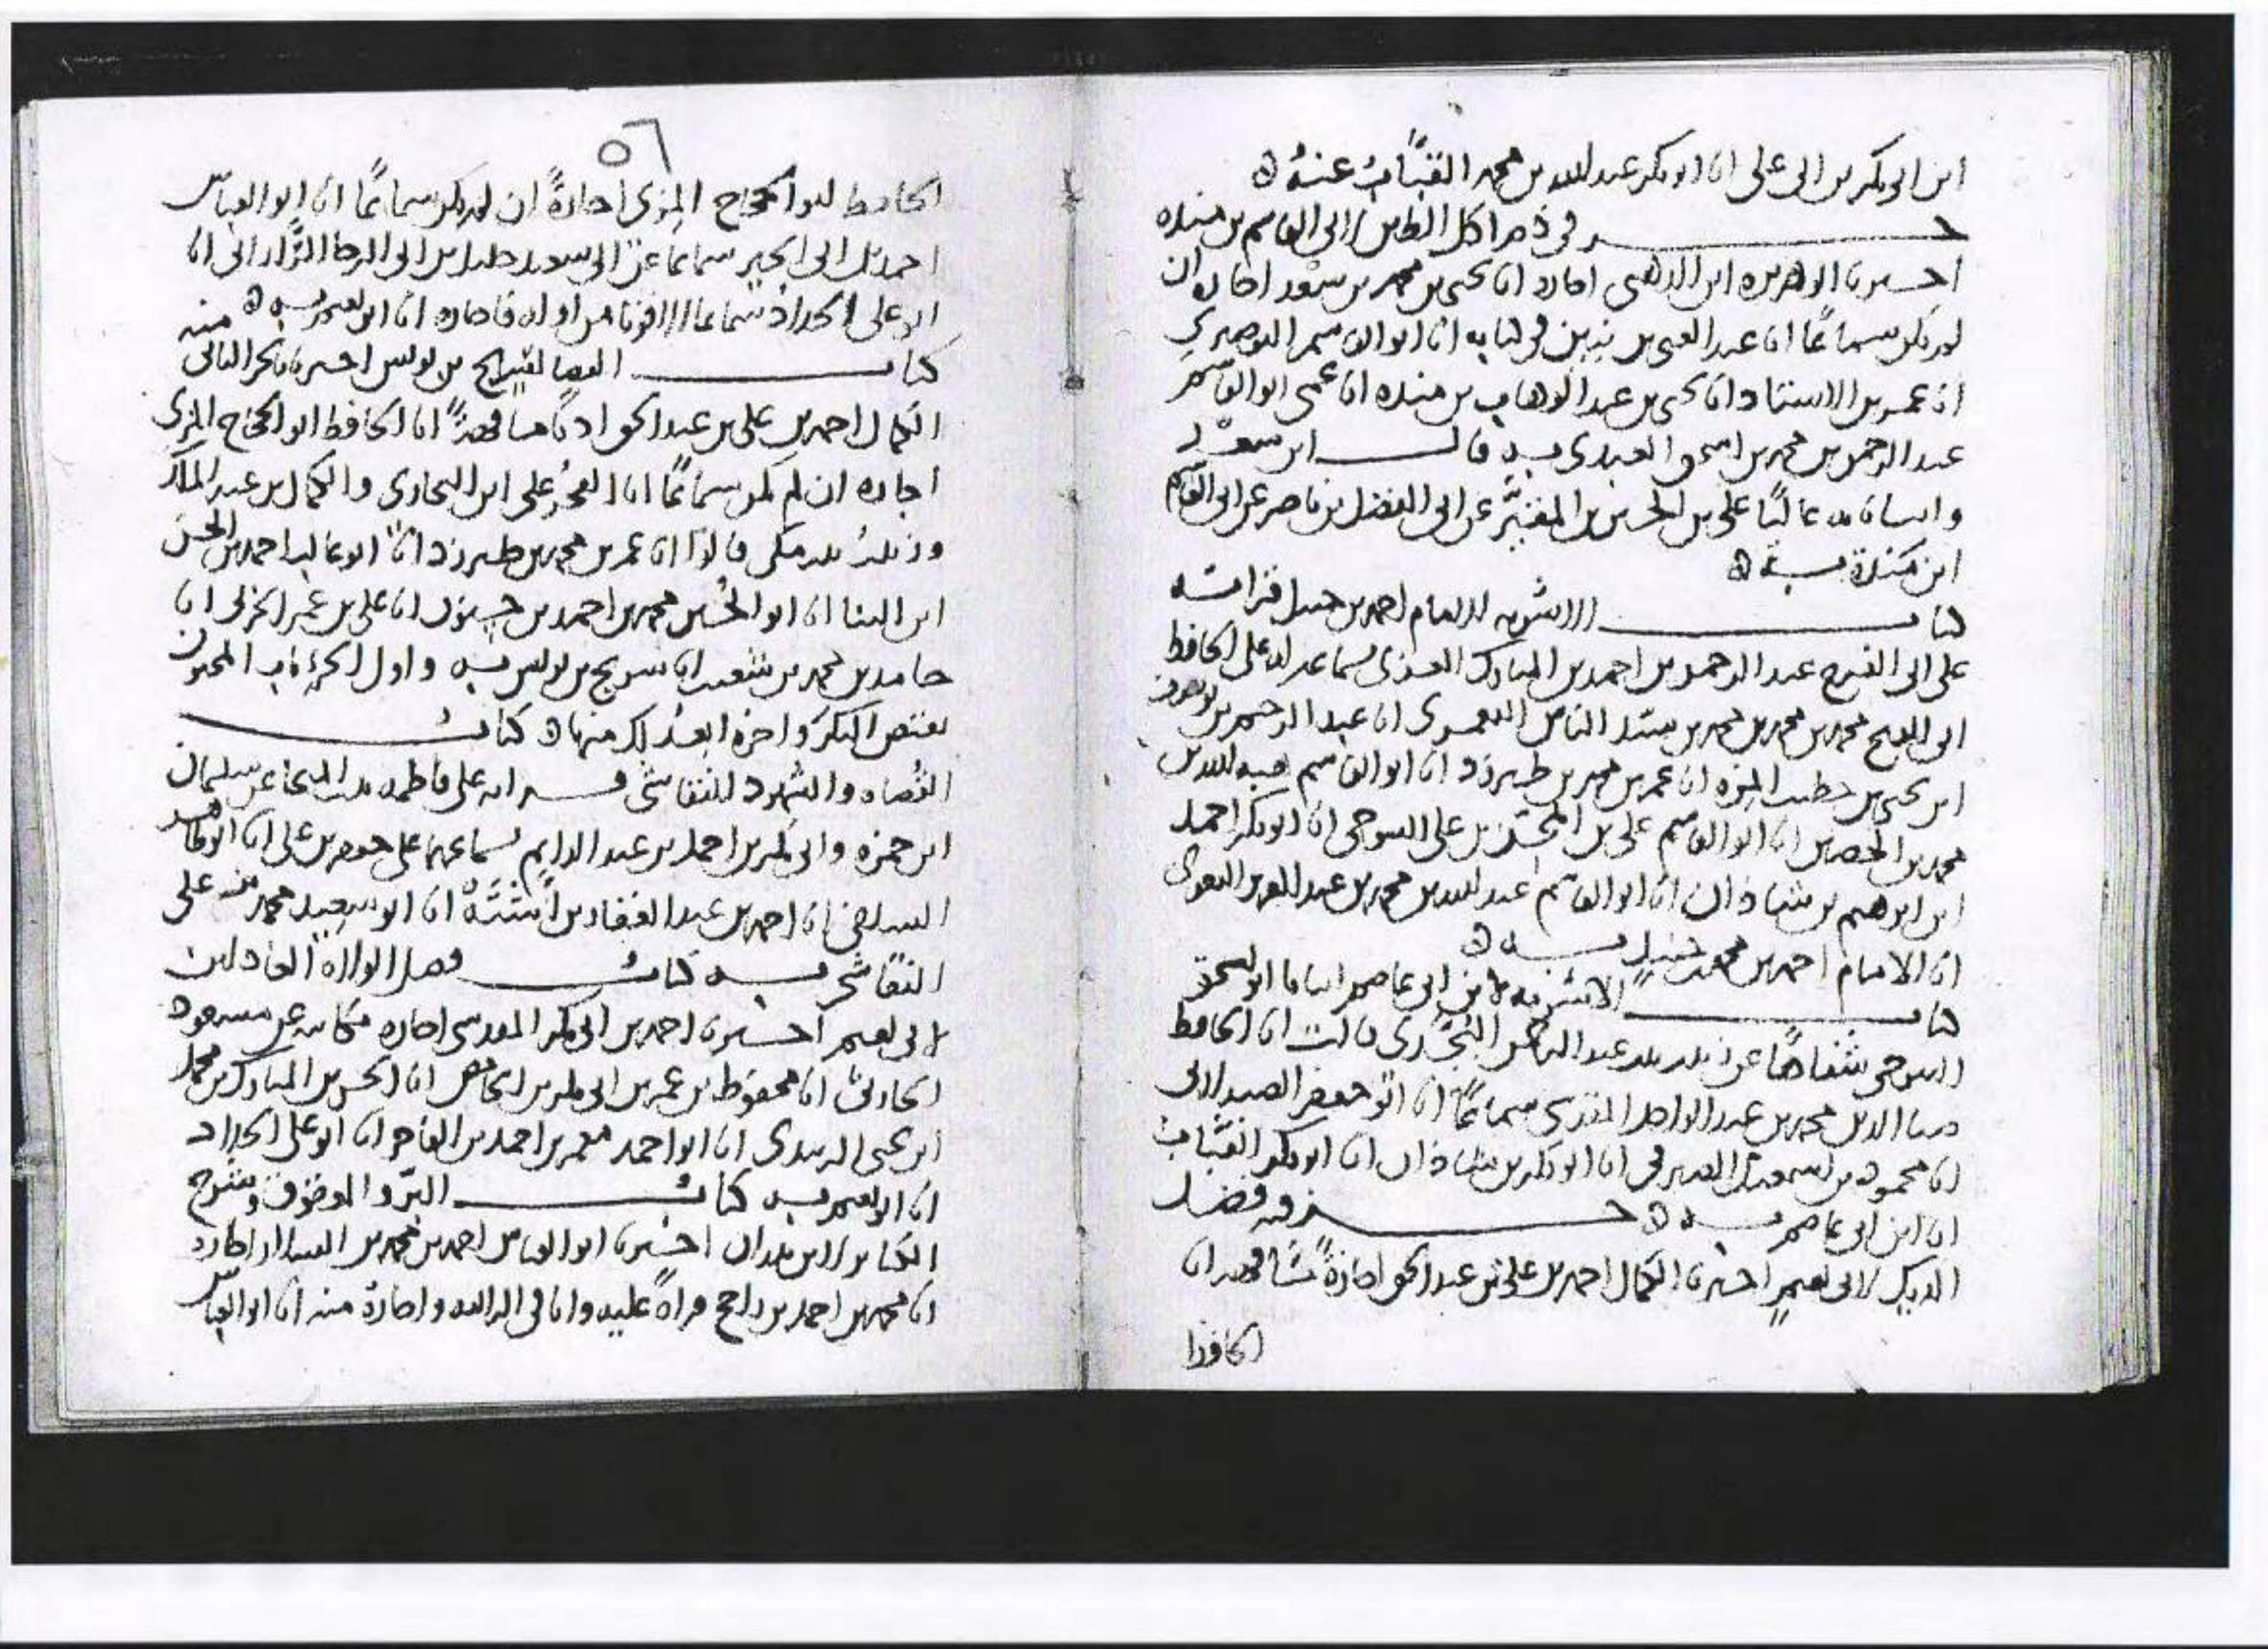 ابن ابي بكر بن ابي علي انا ابو بكر عبد الله بن محمد القباب عنه ه
جزء في ذم اكل الطين لابي القاسم بن منده
اخبرنا ابو هريرة ابن الذهبي اجازة انا يحيى بن محمد بن سعد اجازة ان
لم يكن سماعا انا عبد الغني بن بنين في كتابه انا ابو القاسم البوصيري
انا عمي ابو القاسم
عبد الرحمن بن محمد بن اسحق العبدي به قال ابن سعد
وانبانا به عاليا علي بن الحسين بن المقير عن ابي الفضل بن ناصر عن ابي القاسم
ابن منده به ه
كتاب الاشربه للامام احمد بن حنبل قراته
على ابي الفرج عبد الرحمن بن احمد بن المبارك الغزي بسماعه له على الحافظ
ابي الفتح محمد بن محمد بن محمد بن سيد الناس اليعمري انا عبد الرحيم بن يوسف
ابن يحيى بن خطيب المزه انا عمر بن محمد بن طبرزد انا ابو القاسم هبه الله بن
محمد بن الحصين انا ابو القاسم علي بن المحسن بن علي التنوخي انا ابو بكر احمد
ابن ابرهيم بن شاذان انا ابو القاسم عبد الله بن محمد بن عبد العزيز البغوي
انا الامام احمد بن محمد بن حنبل به ه
كتاب الاشربه لابن ابي عاصم انبانا ابو اسحق
التنوخي شفاها عن زينب بنت عبد الله قالت انا الحافظ
ضيا الدين محمد بن عبد الواحد المقدسي سماعا انا ابو جعفر الصيدلاني
انا محمود بن اسمعيل الصيرفي انا ابو بكر بن شاذان انا ابو بكر القباب
انا ابن ابي عاصم به ه جزء فيه فضل
الديك لابي نعيم اخبرنا الكمال احمد بن علي بن عبد الحق اجازة مشافهة انا
الحافظ
٥٦
الحافظ ابو الحجاج المزي اجازة ان لم يكن سماعا انا ابو العباس
احمد بن ابي الخير سماعا عن ابي سعيد خليل بن ابي الرجا الراراني انا
ابو علي الحداد سماعا الا فوتا من اوله فاجازه انا ابو نعيم به ه
كتاب القضا لسريج بن يونس اخبرنا بالجزء الثاني منه
الكمال احمد بن علي بن عبد الحق اذنا مشافهة انا الحافظ ابو الحجاج المزي
اجازه ان لم يكن سماعا انا الفخر علي ابن البخاري والكمال بن عبد الملك
وزينب بنت مكي قالوا انا عمر بن محمد بن طبرزد انا ابو غالب احمد بن الحسن
ابن البنا انا ابو الحسين محمد بن احمد بن حسنون انا علي بن عمر الحربي انا
حامد بن محمد بن شعيب انا سريج بن يونس به واول الجزء باب المجنون
يفتض البكر واخره ابعد لك منها ه كتاب
القضاه والشهود للنقاش قراته على فاطمه بنت المنجا عن سليمان
ابن حمزه وابي بكر بن احمد بن عبد الدايم بسماعهما على جعفر بن علي انا ابو طاهر
السلفي انا احمد بن عبد الغفار بن اشته انا ابو سعيد محمد بن علي
النقاش به كتاب فضل الولاه العادلين
لابي نعيم اخبرنا احمد بن ابي بكر المقدسي اجازه مكاتبه عن مسعود
الحارثي انا محفوظ بن عمر بن ابي بكر بن الحامض انا الحسن بن المبارك بن محمد
ابن يحيى الزبيدي انا ابو احمد معمر بن احمد بن الفاخر انا ابو علي الحداد
انا ابو نعيم به كتاب البر والوقوف وشرح
الكتاب لابن بندار اخبرنا ابو العباس احمد بن محمد بن اجازة
انا محمد بن احمد بن راجح قراة عليه وانا في الرابعه واجازة منه انا ابو العباس